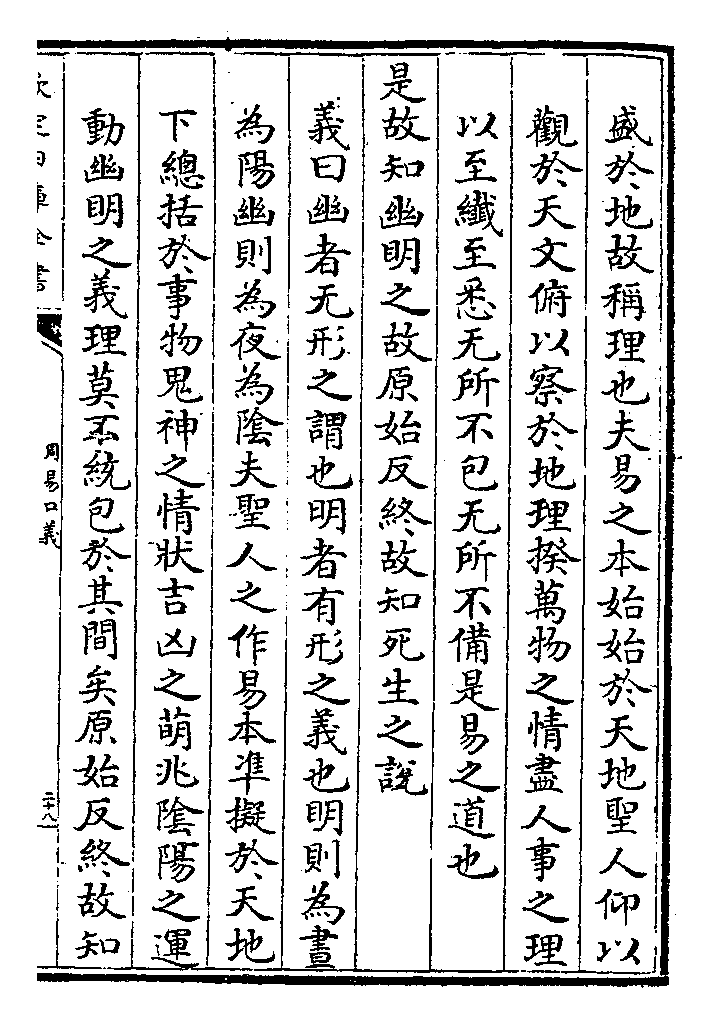 盛於地故稱理也夫易之本始始於天地聖人仰以
觀於天文俯以察於地理揆萬物之情盡人事之理
以至纎至悉无所不包无所不備是易之道也
是故知幽明之故原始反終故知死生之說
義曰幽者无形之謂也明者有形之義也明則為晝
為陽幽則為夜為陰夫聖人之作易本準擬於天地
下總括於事物鬼神之情狀吉凶之萌兆陰陽之運
動幽明之義理莫不統包於其間矣原始反終故知
欽定四庫全書
周易口義
二十八